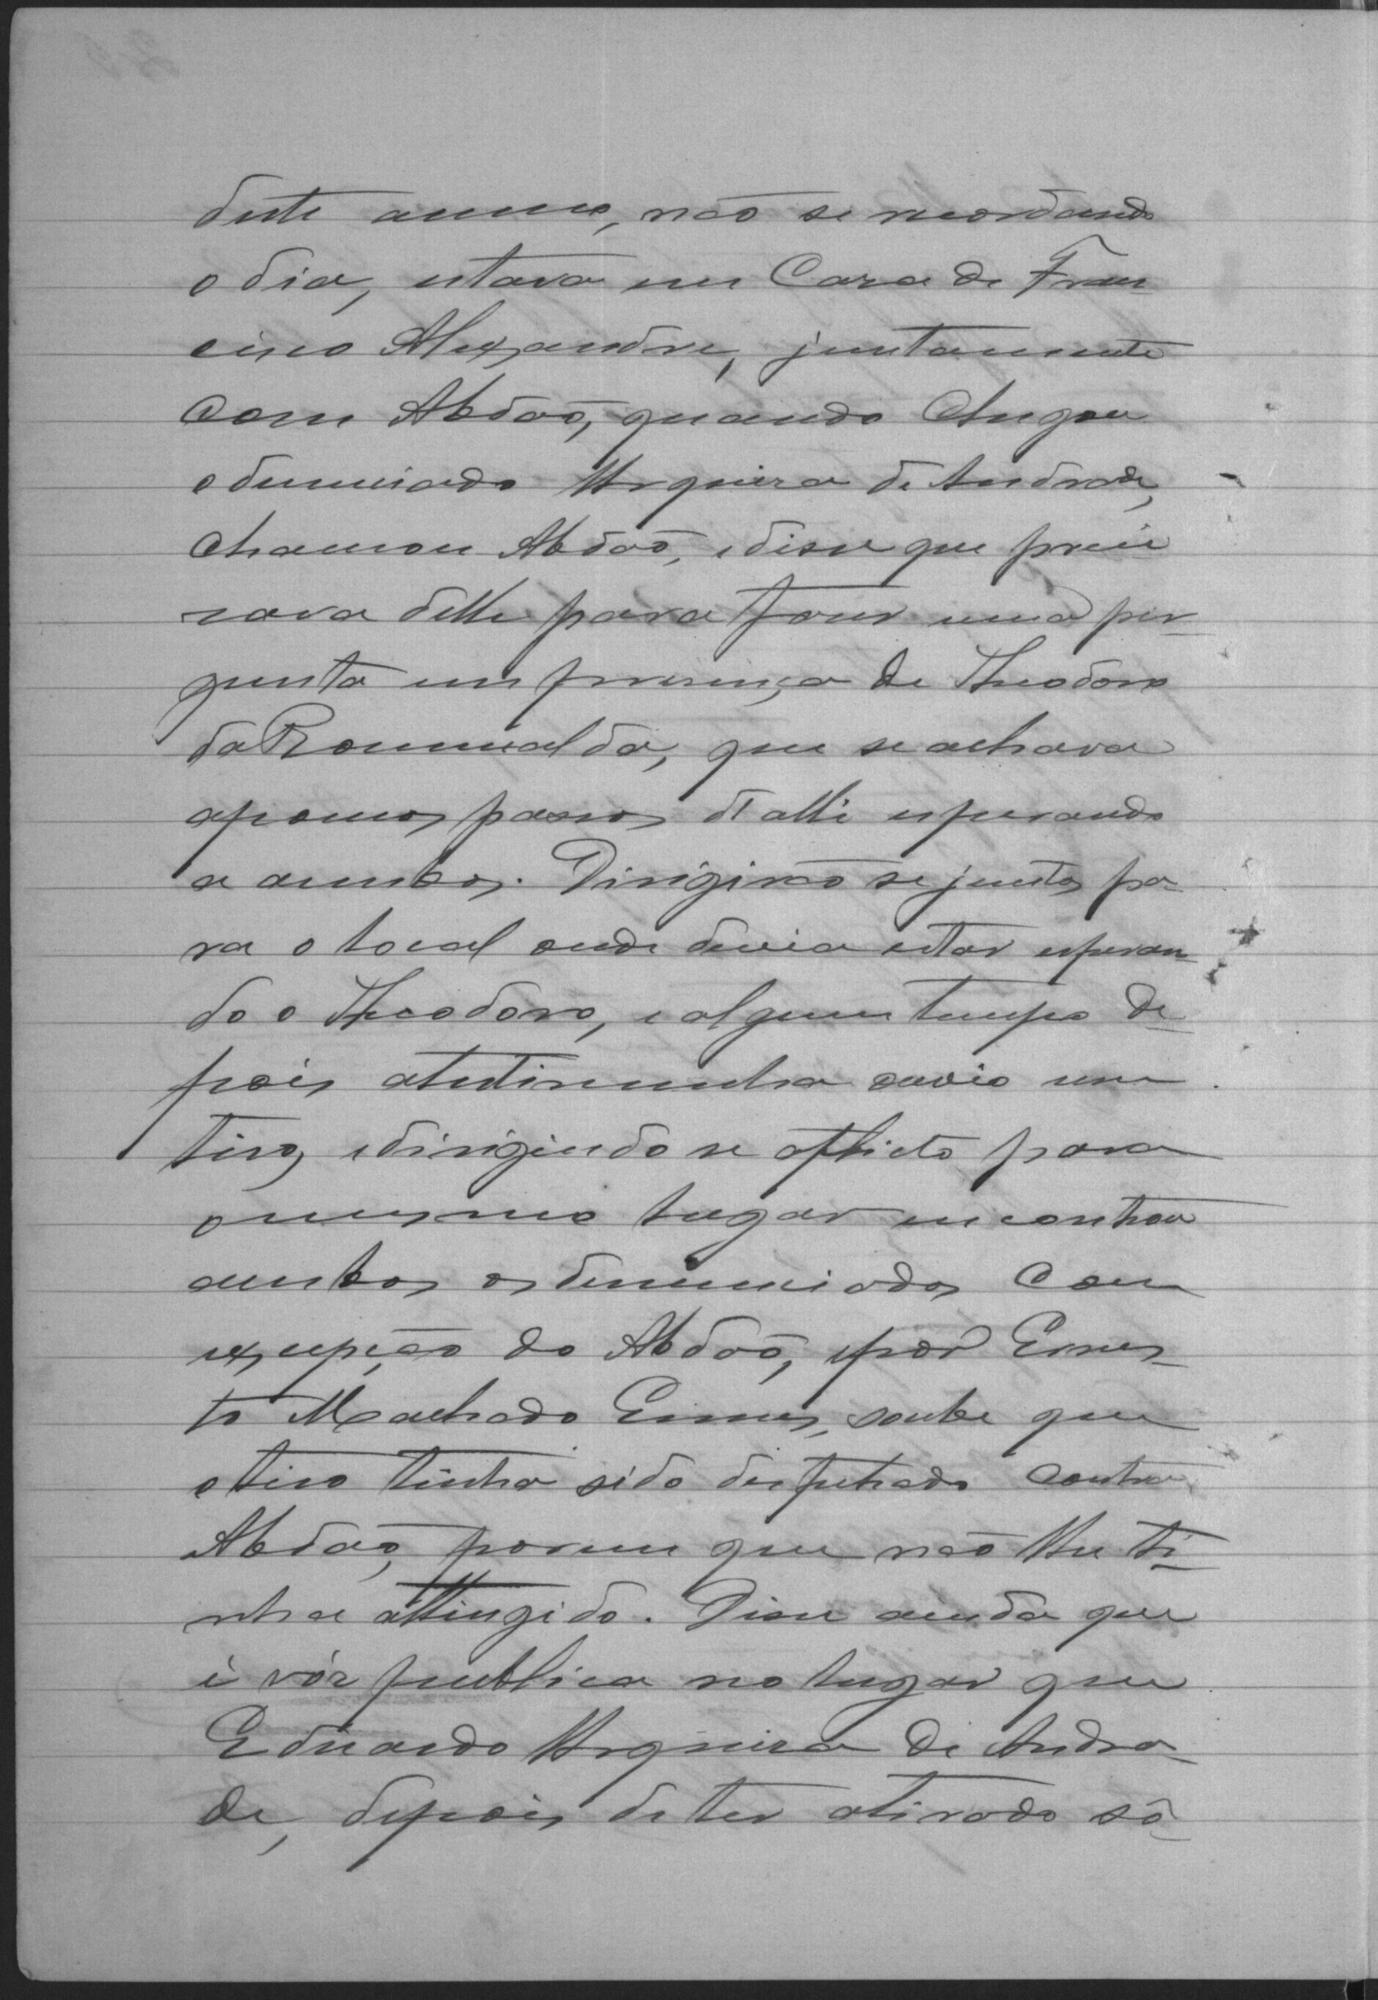 deste anno, não se recordando
o dia, estava em Casa de Fran-
cisco Alexandre, juntamente
com Abdão, quando Chegou
o denunciado Urquiza de Andrade,
chamou Abdão, e disse que preci
sava delle para fazer uma per-
gunta em presença de Theodoro
da Romualda, que se achava
a poucos passos d'alli esperando
a ambos. Dirigirão se juntos pa-
ra o local onde devia estar esperan-
do o Theodoro, e algum tempo de-
pois a testimunha ouvio um
tiro, e dirigindo se afflicto para
o mesmo lugar encontrou
ambos os denunciados com
excepção do Abdão, e por Ernes-
to Machado Ennes, soube que
o tiro tinha sido disfechado contra
Abdão, porem que não lhe ti-
nha attingido. Disse ainda que
é vóz publica no lugar que
Eduardo Urquiza de Andra-
de, depois de ter atirado so-